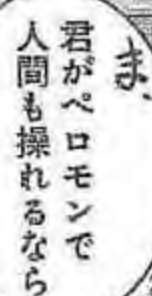 ま、
君がペロモンで
人間も操れるなら